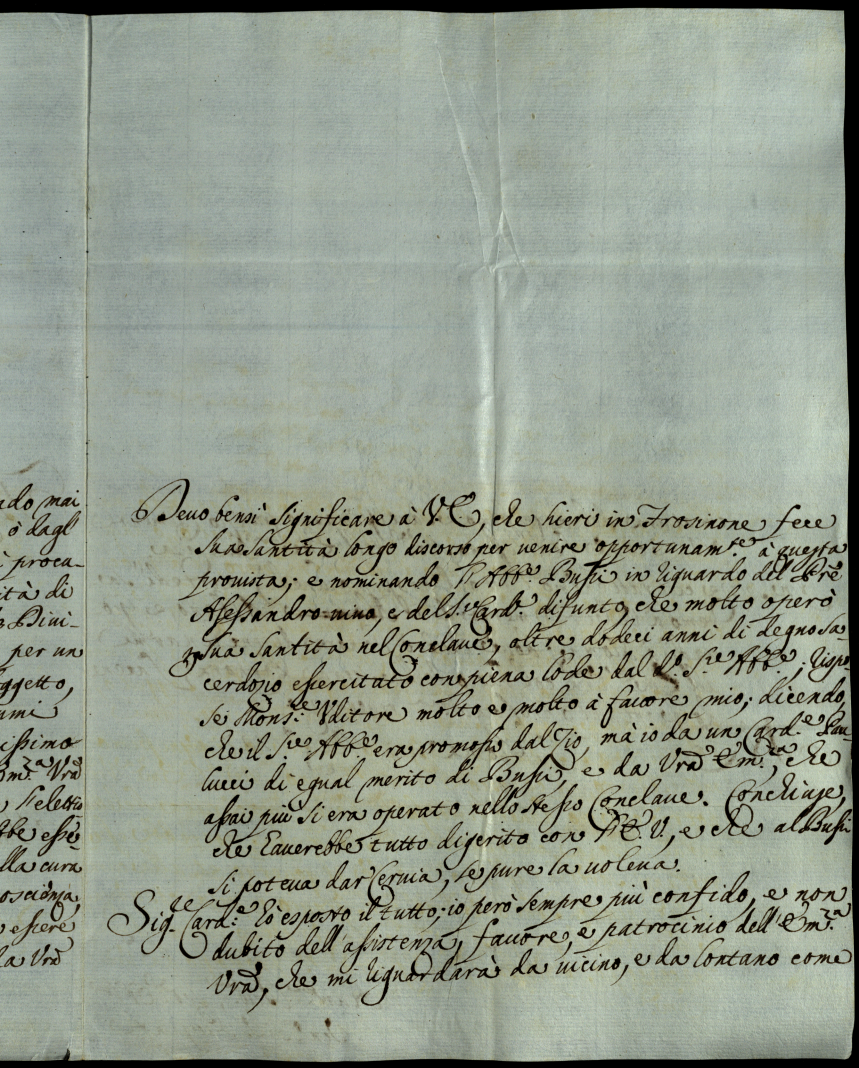 ado mai
ò dagl
i procu-
ità di
Divi-
per un
ggetto,
umi
issimo
om.ᶻᵃ Vrâ
l'eletti
bbe esse
lla cura
oscienza,
essere
la Vrâ
Devo bensì significare à V. E, che hieri in Frosinone fece
Sua Santità longo discorso per venire opportunam.ᵗᵉ à questa
provista; e nominando l'Abb.ᵉ Bussi in riguardo del Prê
Alessandro vivo, e del S.ʳ Card.ᵉ difunto, che molto operò
p Sua Santità nel Conclave, oltre dodeci anni di degno Sa-
cerdozio essercitato con piena lode dal d.º S.ʳᵉ Abb.ᵉ; rispo-
se Mons.ʳᵉ Vditore molto e molto à favore mio; dicendo,
che il S.ʳᵉ Abb.ᵉ era promosso dal Zio, mà io da un Card.ᵉ Pau-
lucci di egual merito di Bussi, e da Vrâ Em.ᶻᵃ, che
assai più si era operato nello stesso Conclave. Conchiuse,
che l'averebbe tutto digerito con l'E. V., e che al Bussi
si poteva dar Cervia, se pure la voleva.
Sig.ʳᵉ Card.ᵉ hò esposto il tutto; io però sempre più confido, e non
dubito dell'assistenza, favore, e patrocinio dell'Em.ᶻᵃ
Vrâ, che mi riguardarà da vicino, e da lontano come